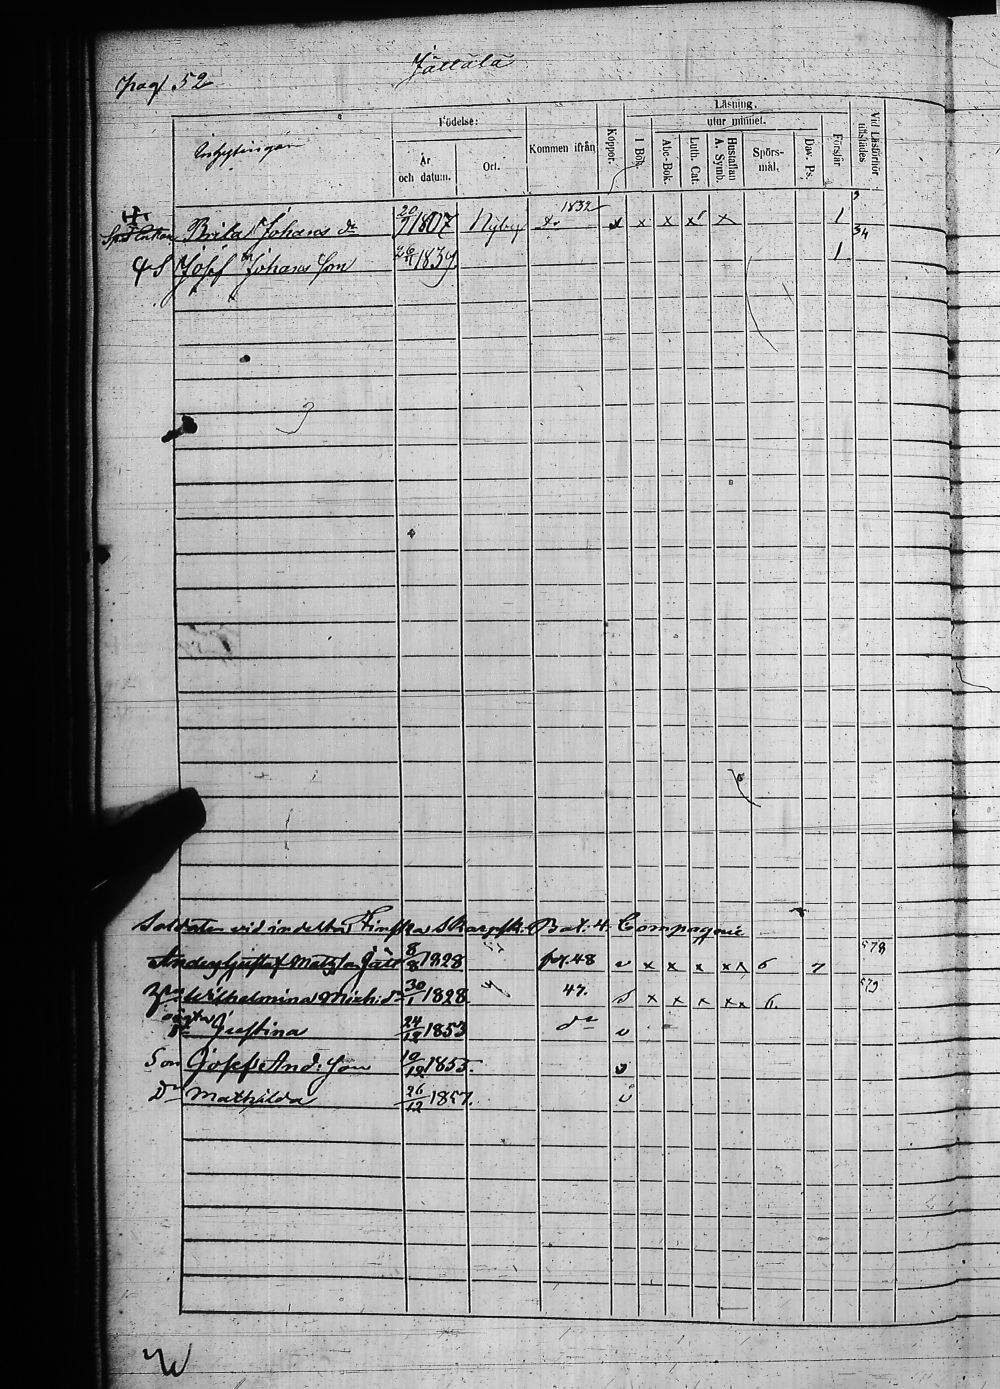 Jättälä
pag. 52
Läsning.
Födelse: utur minnet.
Inhysingar
År och datum. Ort. Kommen ifrån Koppor. I Bok. Abc-Bok. Luth. Cat. Hustaflan A. Symb. Spörs-mål. Dav. Ps. Förstår Vid Läsförhör tillstädes
1832
Brita Johans dr 20/9 1807 Nyby x x x x x 1 34
Josef Johans son 26/11 1839 1
Soldater vid indelta Finska Skarpsk. Bat. 4. Compagnie
Anders Gustaf Matzson Jätt 8/8 1828 pag. 48 v x x x x x 6 7 578
Wilhelmina Mich: dr 30/1 1828 47. S x x x x x 6. 579
Dr Justina 24/12 1853 dr v
Son Josef And: Son 10/12 1855. v
Dr Mathilda 26/12 1857. v